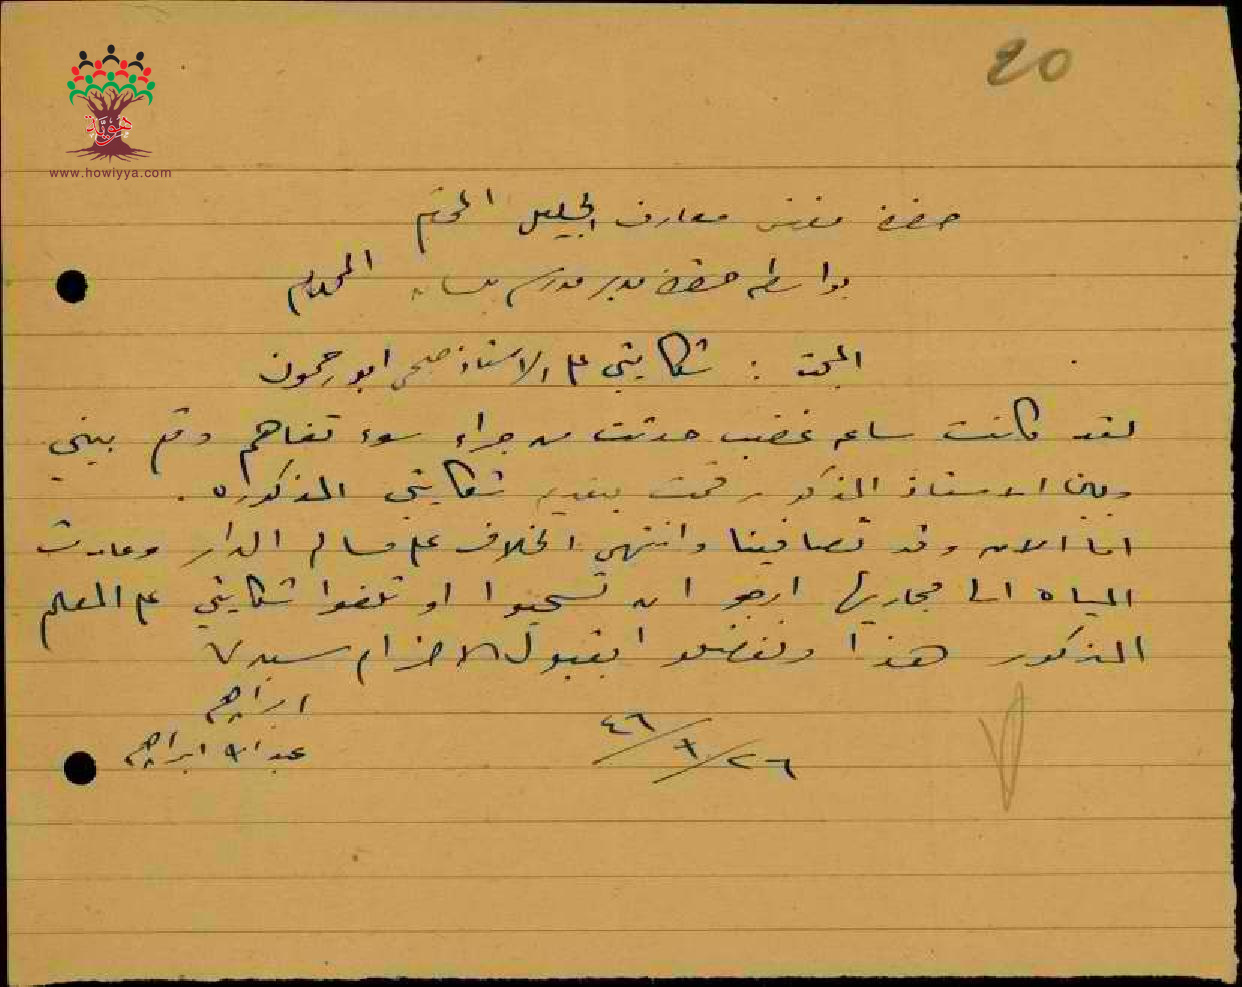 20
هوية
www.howiyya.com
حضرة مفتش معارف الجليل المحترم
بواسطة حضرة مدير مدرسة بيسان المحترم
المبحث : شكايتي على الاستاذ صبحي ابو رحمون
لقد كانت ساعه غضب حدثت من جراء سوء تفاهم وقع بيني
وبين الاستاذ المذكور وقمت بتقديم شكايتي المذكوره .
اما الان وقد تصافينا وانتهى الخلاف على مسالة الدار وعادت
المياه الى مجاريها ارجو ان تسحبوا او تلغوا شكايتي على المعلم
المذكور هذا وتفضلوا بقبول الاحترام سيدي
ابراهيم
عبدالله ابراهيم
٢٦/٦/٤٦